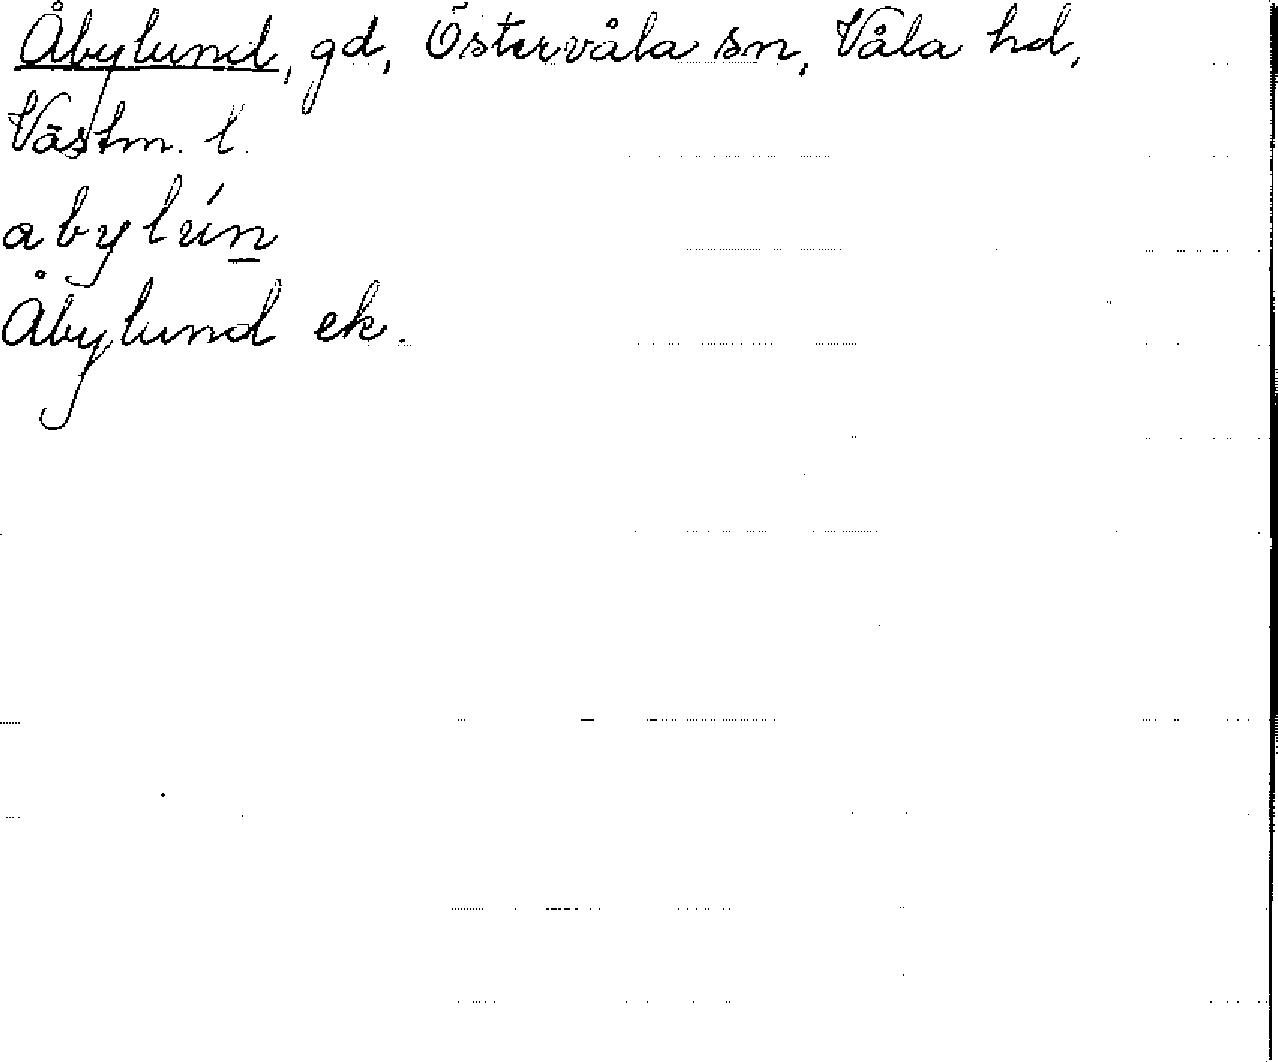 Åbylund, gd, Östervåla sn, Våla hd,
Västm. l.
abylún
Åbylund ek.